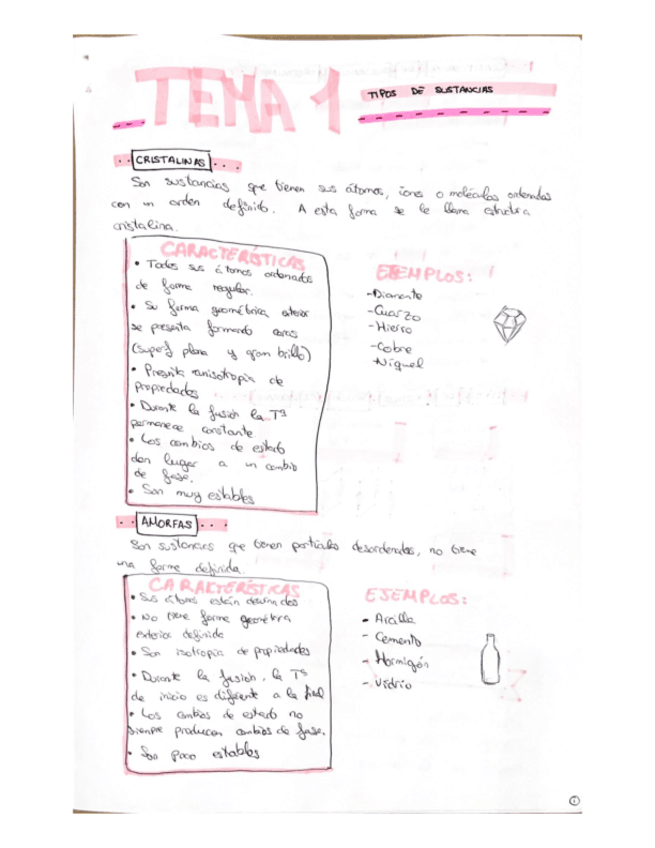 TEMA 1
TIPOS DE SUSTANCIAS
CRISTALINAS
Son sustancias que tienen sus átomos, iones o moléculas ordenadas
con un orden definido. A esta forma se le llama estructura
cristalina.
CARACTERÍSTICAS
• Todos sus átomos ordenados
de forma regular.
• Su forma geométrica exterior
se presenta formando caras
(superf plana y gran brillo)
• Presenta anisotropia de
propiedades
• Durante la fusión la Tª
permanece constante.
• Los cambios de estado
dan lugar a un cambio
de fase.
• Son muy estables
EJEMPLOS:
-Diamante
-Cuarzo
-Hierro
-Cobre
-Niquel
AMORFAS
Son sustancias que tienen partículas desordenadas, no tiene
una forma definida.
CARACTERÍSTICAS
• Sus átomos están
• No tiene forma geométrica
exterior definida
• Son isotropia de propiedades
• Durante la fusión, la Tª
de inicio es diferente a la final
• Los cambios de estado no
siempre producen cambios de fase.
• Son poco estables
EJEMPLOS:
- Arcilla
- Cemento
- Hormigón
- Vidrio
1